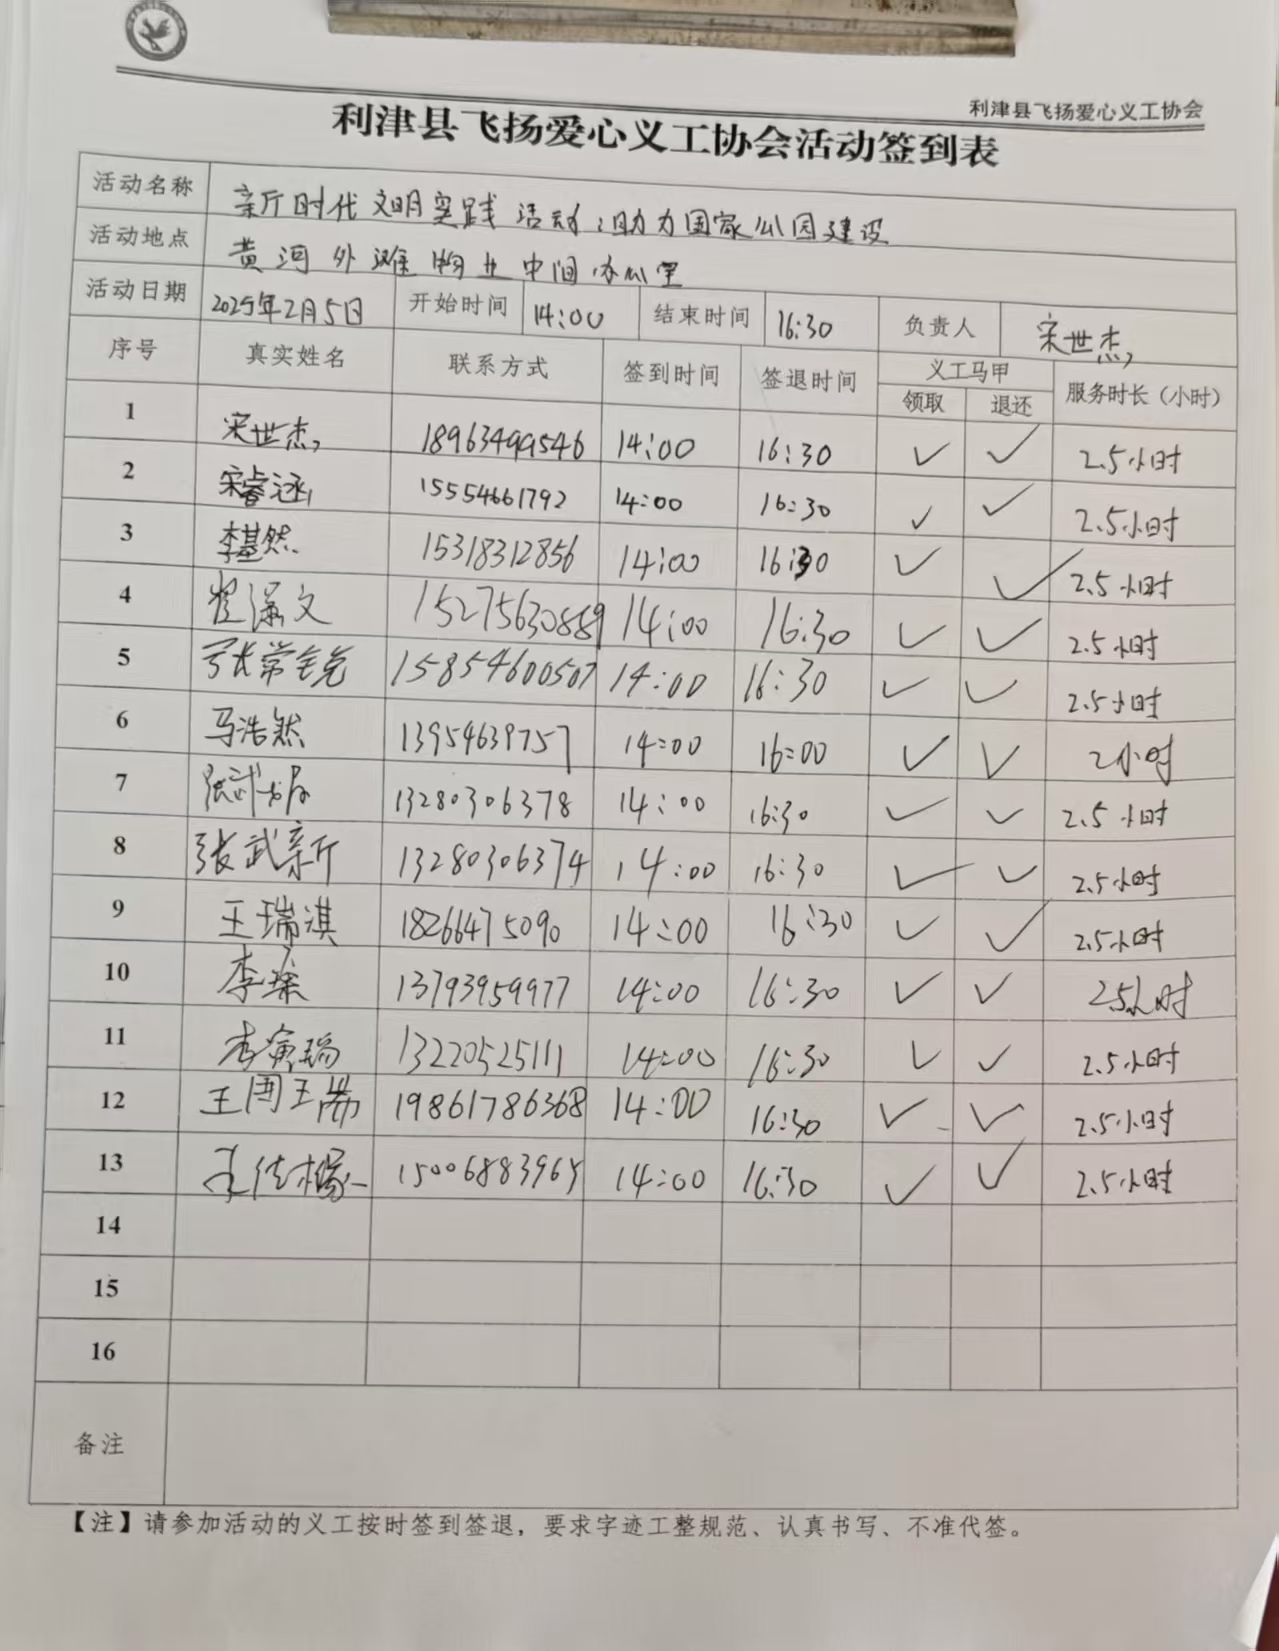 利津县飞扬爱心义工协会
利津县飞扬爱心义工协会活动签到表
活动名称 新时代文明实践活动:助力国家公园建设
活动地点 黄河外滩物业中间办公室
活动日期 2025年2月5日 开始时间 14:00 结束时间 16:30 负责人 宋世杰
序号 真实姓名 联系方式 签到时间 签退时间 义工马甲 服务时长（小时）
领取 退还
1 宋世杰 18963499546 14:00 16:30 ✓ ✓ 2.5小时
2 宋睿涵 15554661792 14:00 16:30 ✓ ✓ 2.5小时
3 李基然 15318312856 14:00 16:30 ✓ ✓ 2.5小时
4 崔潇文 15275630889 14:00 16:30 ✓ ✓ 2.5小时
5 张常 15854600507 14:00 16:30 ✓ ✓ 2.5小时
6 马浩然 13954639757 14:00 16:00 ✓ ✓ 2小时
7 张武 13280306378 14:00 16:30 ✓ ✓ 2.5小时
8 张武新 13280306374 14:00 16:30 ✓ ✓ 2.5小时
9 王瑞淇 18266475090 14:00 16:30 ✓ ✓ 2.5小时
10 李 13793959977 14:00 16:30 ✓ ✓ 2.5小时
11 李寅瑞 13220525111 14:00 16:30 ✓ ✓ 2.5小时
12 王 19861786368 14:00 16:30 ✓ ✓ 2.5小时
13 15006883965 14:00 16:30 ✓ ✓ 2.5小时
14
15
16
备注
【注】请参加活动的义工按时签到签退，要求字迹工整规范、认真书写、不准代签。